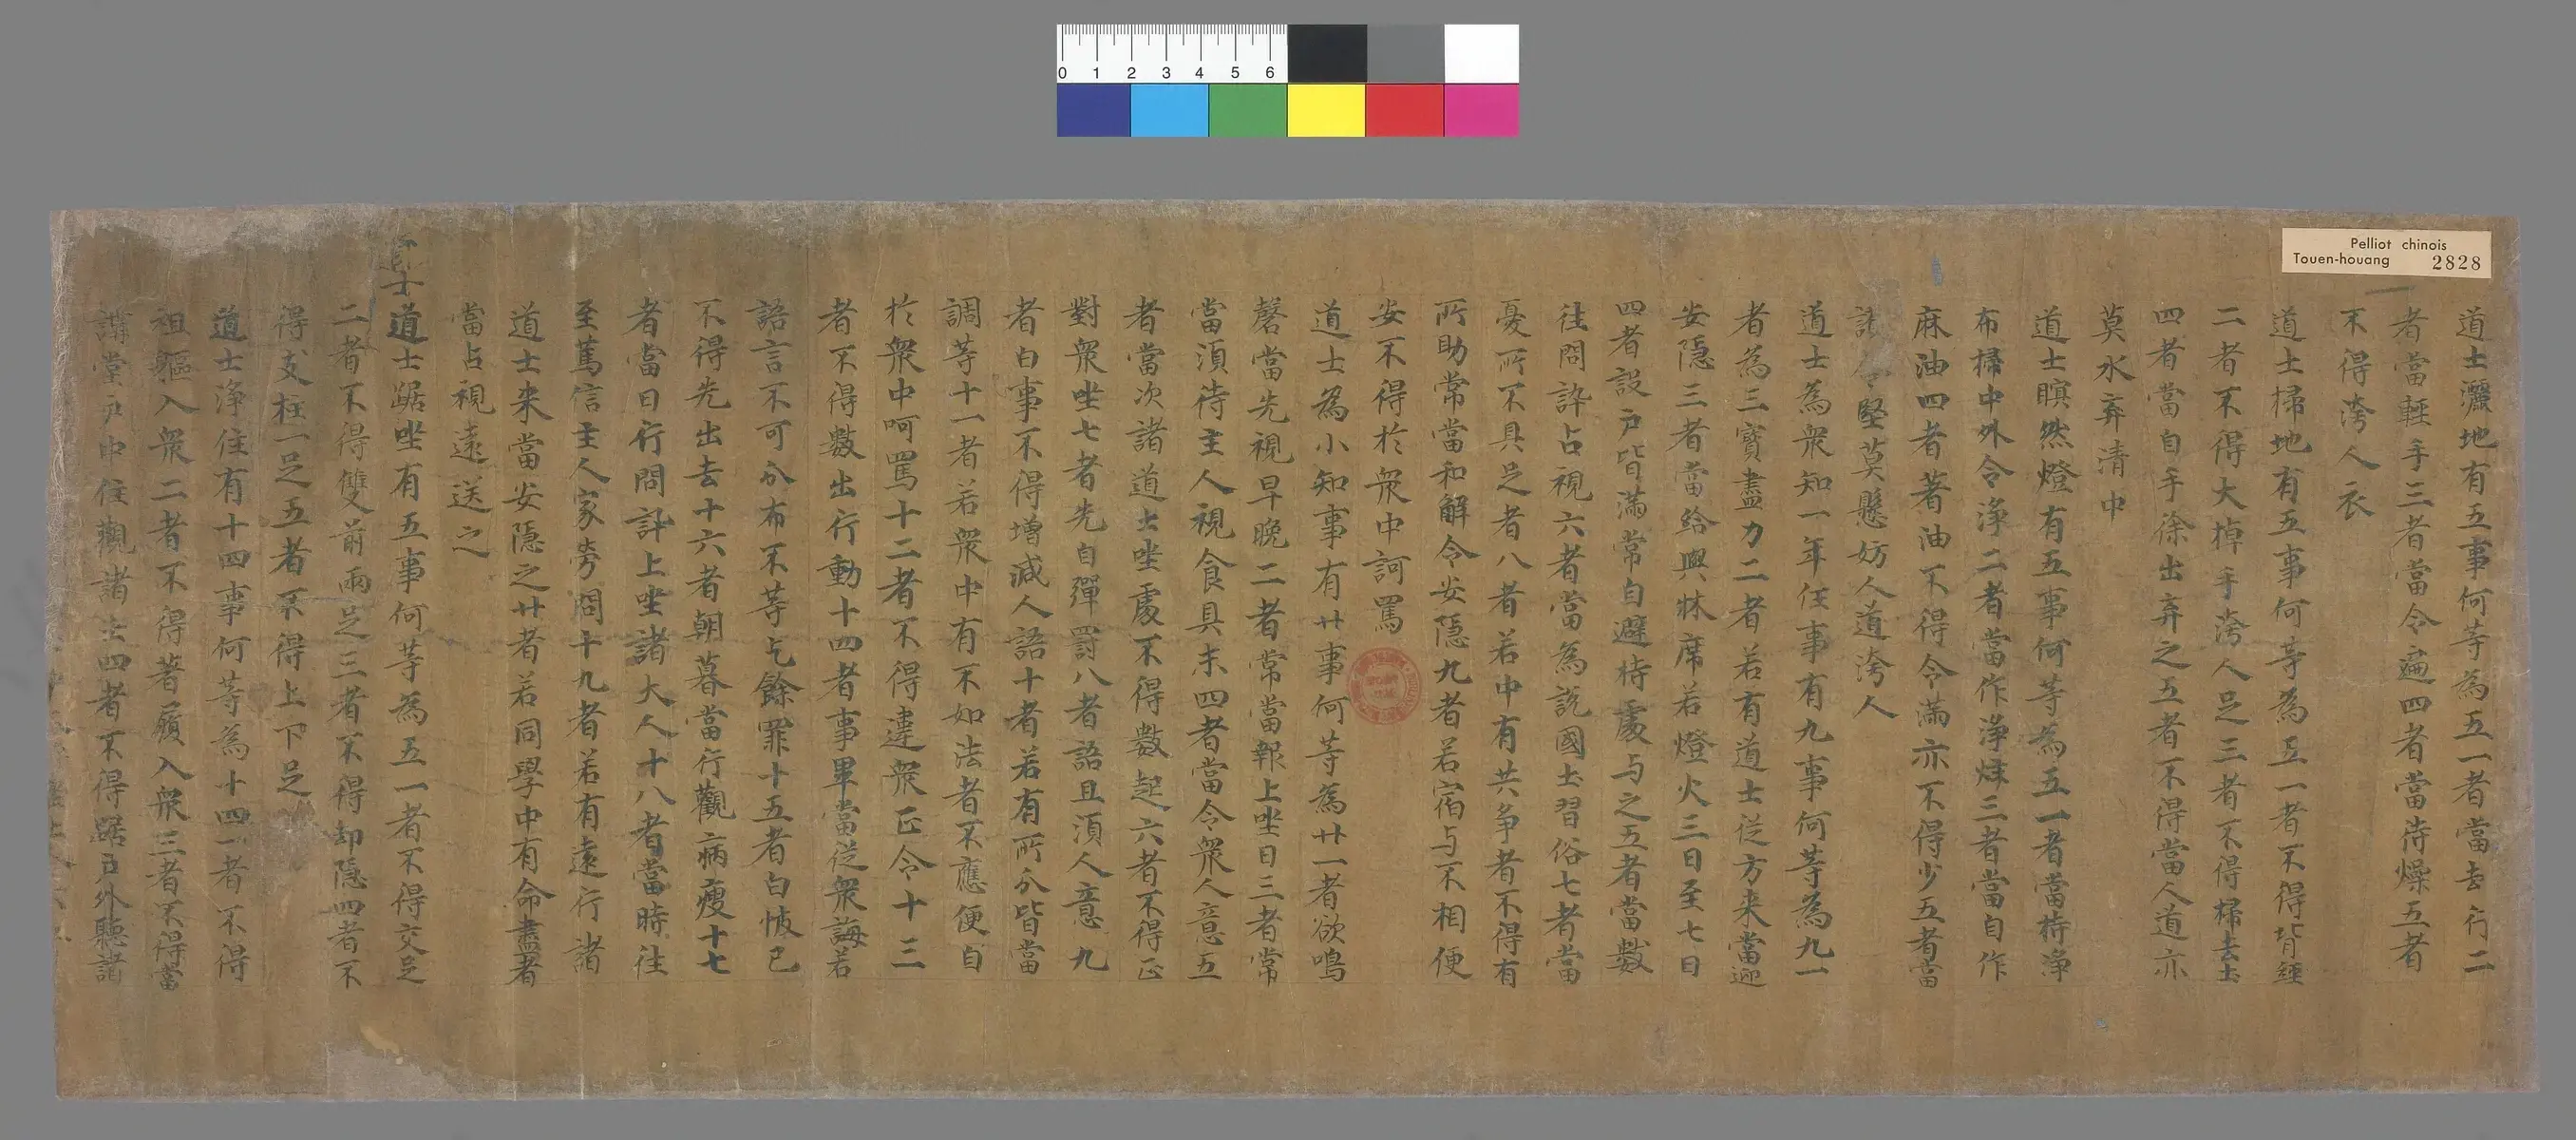 Pelliot chinois
Touen-houang 2828
0 1 2 3 4 5 6
道士灑地有五事何等為五一者當去行二
者當輕手三者當令遍四者當待燥五者
不得洿人衣
道士掃地有五事何等為五一者不得背經
二者不得大掉手洿人足三者不得掃去土
四者當自手徐出弃之五者不得當人道亦
莫水弃清中
道士暝然燈有五事何等為五一者當持淨
布掃中外令淨二者當作淨炷三者當自作
麻油四者著油不得令滿亦不得少五者當
令堅莫懸妨人道洿人
道士為衆知一年任事有九事何等為九一
者為三寶盡力二者若有道士從方来當迎
安隱三者當給與牀席若燈火三日至七日
四者設戶皆滿常自避持處与之五者當數
往問訊占視六者當為說國土習俗七者當
憂所不具足者八者若中有共爭者不得有
所助常當和解令安隱九者若宿与不相便
安不得於衆中訶罵
道士為小知事有廿事何等為廿一者欲鳴
磬當先視早晚二者常當報上坐日三者常
當須待主人視食具未四者當令衆人意五
者當次諸道士坐處不得數起六者不得正
對衆坐七者先自彈罸八者語且須人意九
者白事不得增減人語十者若有所分皆當
調等十一者若衆中有不如法者不應便自
於衆中呵罵十二者不得違衆正令十三
者不得數出行動十四者事畢當從衆誨若
語言不可分布不等乞餘罪十五者白悔已
不得先出去十六者朝暮當行觀病瘦十七
者當日行問訃上坐諸大人十八者當時往
至篤信主人家勞問十九者若有遠行諸
道士来當安隱之廿者若同學中有命盡者
當占視遠送之
道士踞坐有五事何等為五一者不得交足
二者不得雙前兩足三者不得却隱四者不
得支柱一足五者不得上下足
道士淨住有十四事何等為十四一者不得
袒軀入衆二者不得著屐入衆三者不得當
講堂戶中住觀諸法四者不得踞戶外聽諸